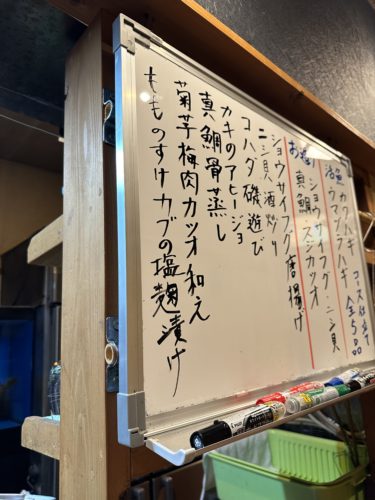 活魚 カワハギ
ウマヅラハギ
コース仕立て
全5,500
ショウサイフグ・ニシ貝
真鯛 スジカツオ
ショウサイフグ唐揚げ
ニシ貝酒炒り
コハダ磯遊び
カキのアヒージョ
真鯛骨蒸し
菊芋梅肉カツオ和え
もものすけカブの塩麹漬け